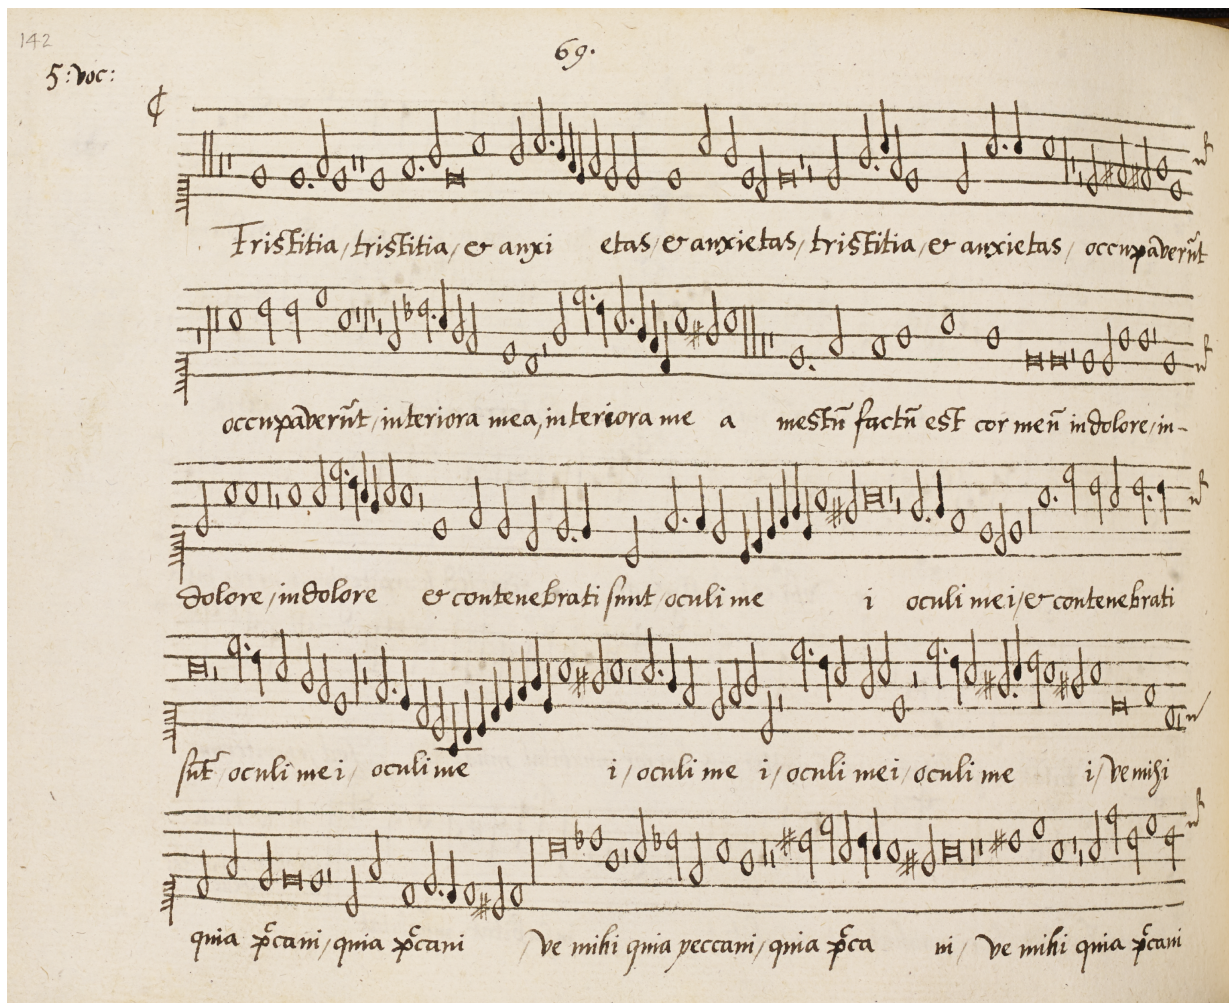 142
69.
5: voc:
Tristitia / tristitia / & anxi etas / & anxietas / tristitia / & anxietas / occupaverũt
occupaverũt / interiora mea, interiora me a mestũ factũ est cor meũ in dolore / in-
dolore / in dolore & contenebrati sunt oculi me i oculi mei / & contenebrati
sũt oculi mei / oculi me i / oculi me i / oculi mei / oculi me i / ve mihi
quia p̃cavi / quia p̃cavi / ve mihi quia peccavi / quia p̃ca vi / ve mihi quia p̃cavi